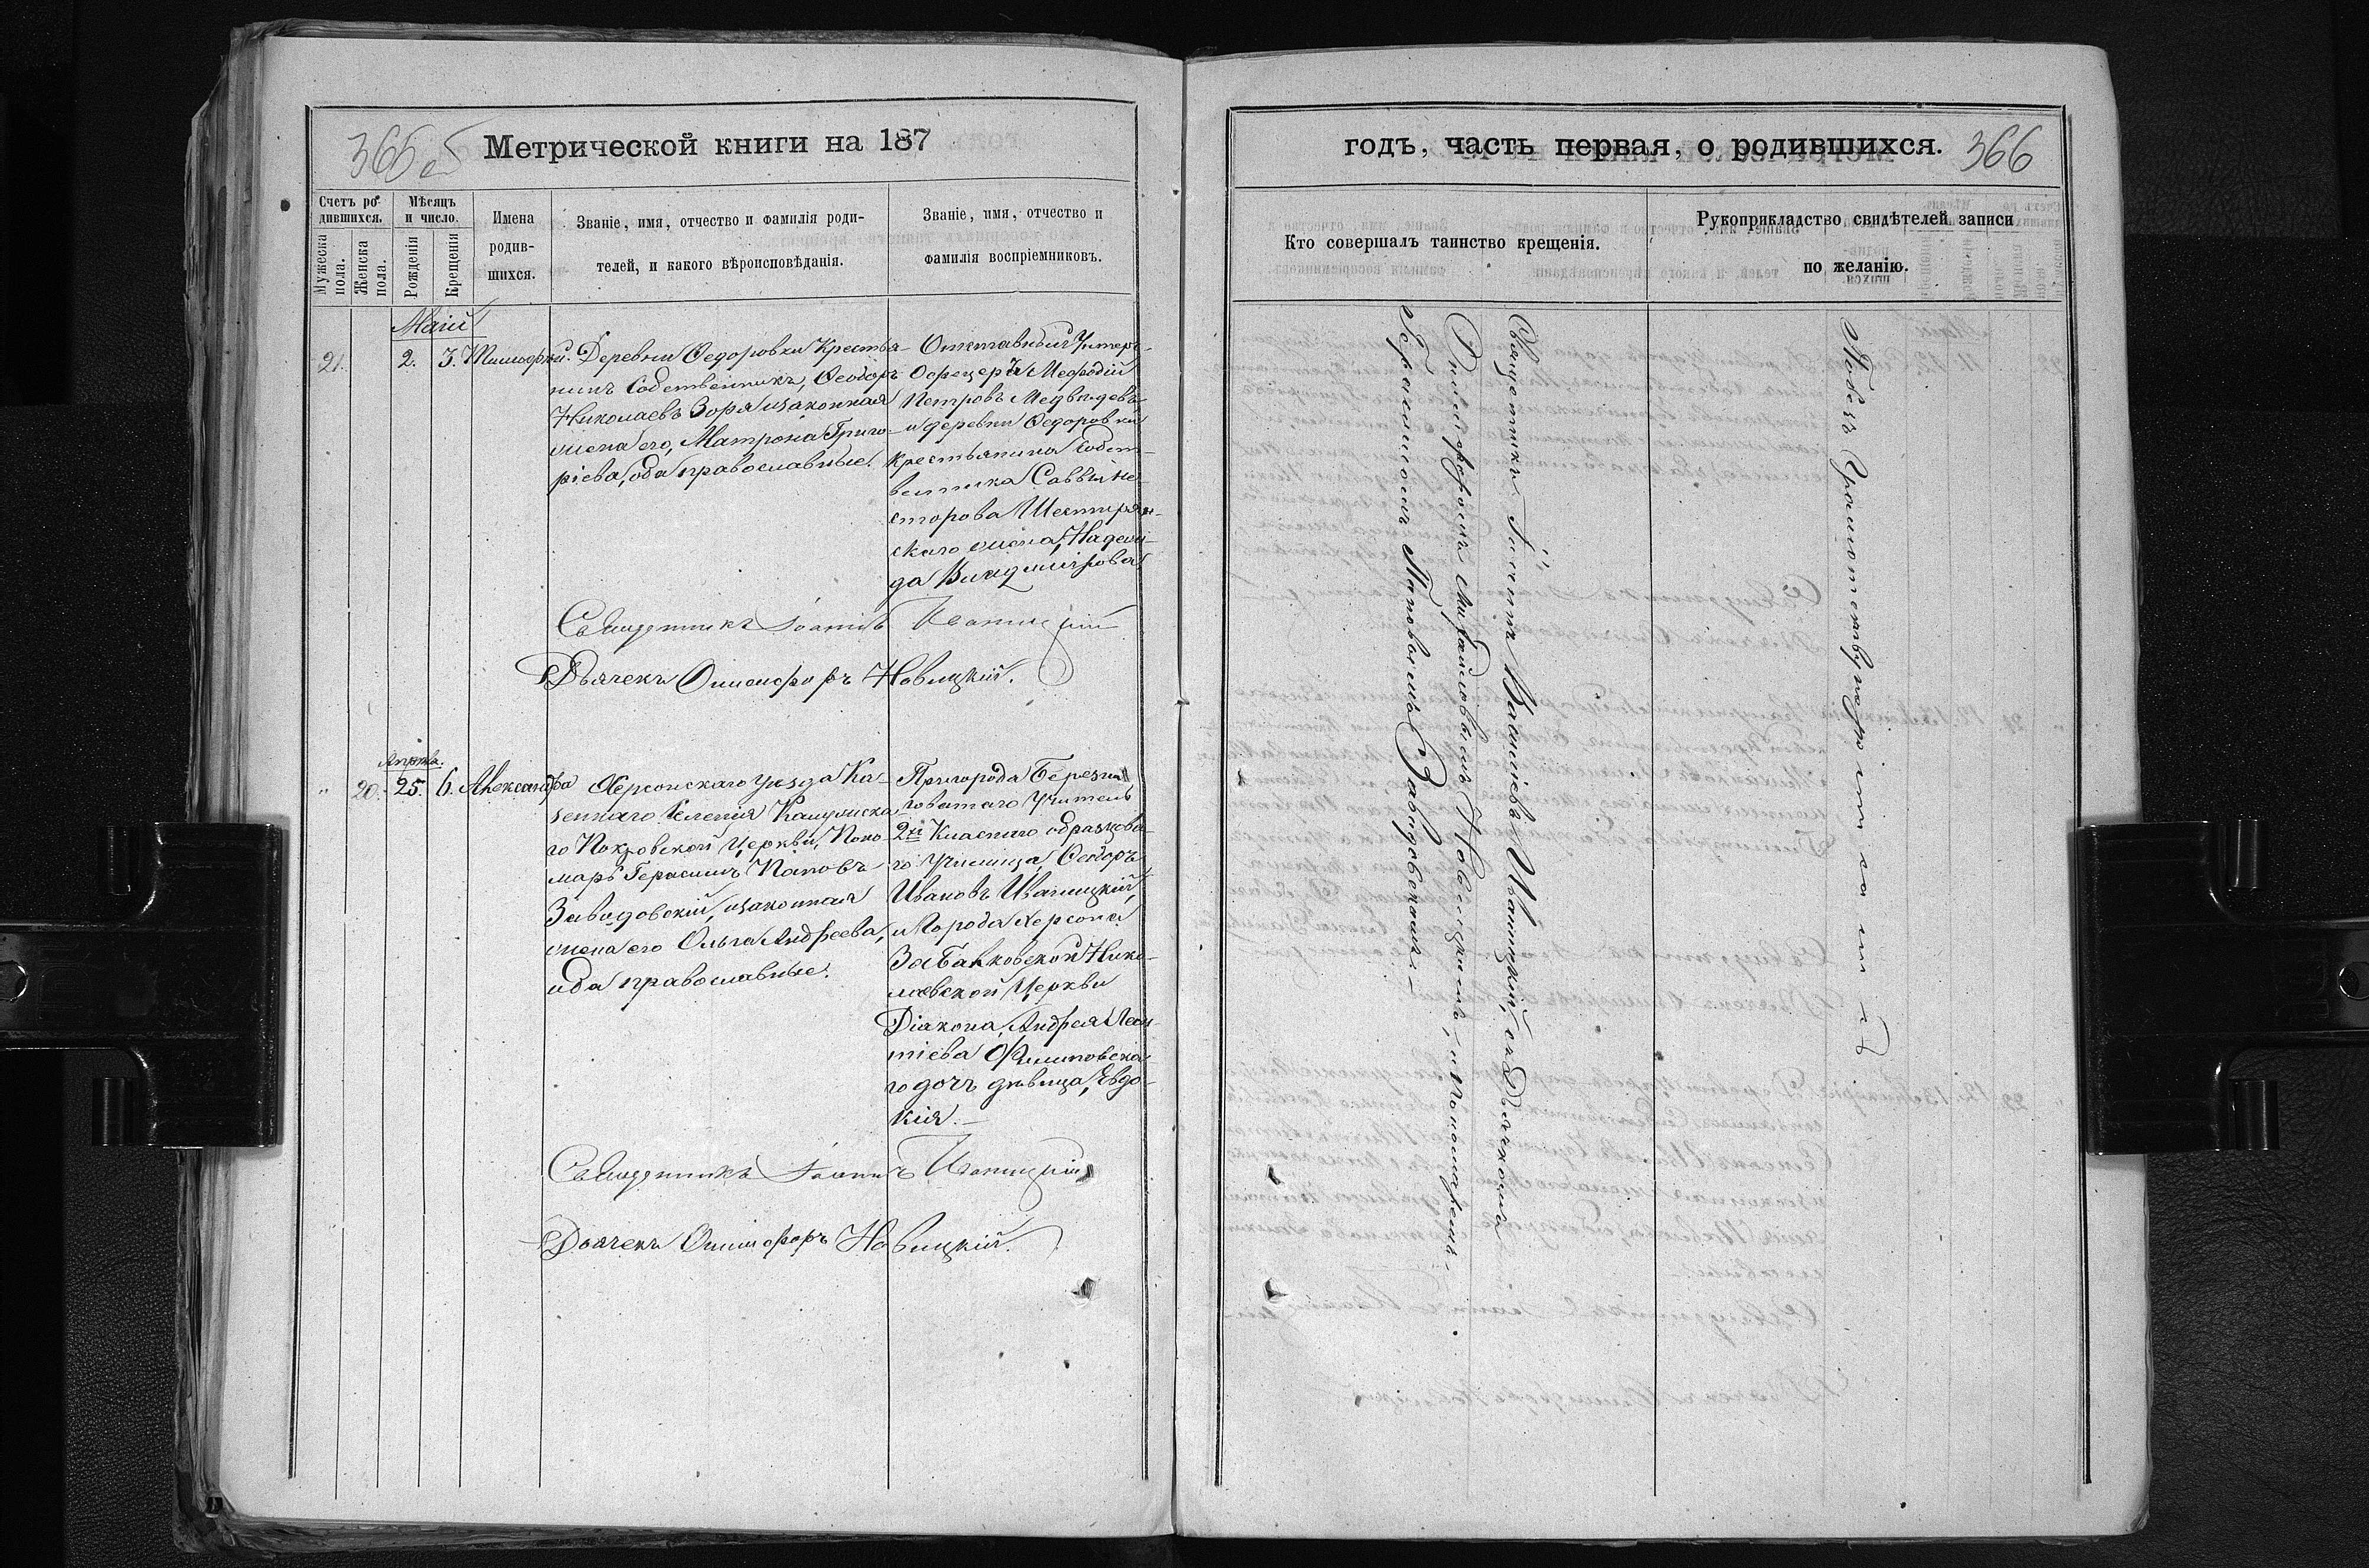 366 об
Метрической книги на 187
Счетъ ро-
дившихся.
Мужеска
пола.
Женска
пола.
Мѣсяцъ
и число.
Рожденія
Крещенія
Имена
родив-
шихся.
Званіе, имя, отчество и фамилія роди-
телей, и какого вѣроисповѣданія.
Званіе, имя, отчество и
фамилія воспріемниковъ.
Маій
21. 2. 3. Тимофей.
Деревни Ѳедоровки Крестья-
нинъ Собственникъ, Ѳеодоръ
Николаевъ Зоря и законная
жена его, Матрона Григо-
ріева, оба православные.
Отставный Унтеръ-
Офицеръ Меѳодій
Петровъ Медвѣдевъ
и деревни Ѳедоровки
крестьянина Собст-
венника Саввы Не
сторова Шестирян-
скаго жена, Надеж-
да Владимірова
Священникъ Іоаннъ Иваницкій
Дьячекъ Онисифоръ Новицкій.
Апрѣля.
" 20. 25. 6. Александра
Херсонскаго уѣзда Ка-
зеннаго Селенія
го Покровской Церкви, Поно-
марь Герасимъ Паповъ
Заводовскій, и законная
жена его Ольга Андреева,
оба православные.
Пригорода Березне-
говатаго Учитель
2хъ Класнаго образцова-
го Училища, Ѳеодоръ
Ивановъ Иваницкій,
и Города Херсона
Забалковской Нико-
лаевской Церкви
Діакона, Андрея Леон-
тіева Филиповска-
го дочь дѣвица, Евдо-
кія.
Священникъ Іоаннъ Иваницкій
Дьячекъ Онисифоръ Новицкій.
годъ, часть первая, о родившихся.
366
Кто совершалъ таинство крещенія.
Рукоприкладство свидѣтелей записи
по желанію.
Священникъ Іоаннъ Васильевъ Иваницкій, съ Дьячкомъ
Онисифоромъ Михайловымъ Новицкимъ, и Пономаремъ
Герасимомъ Паповымъ Заводовскимъ.